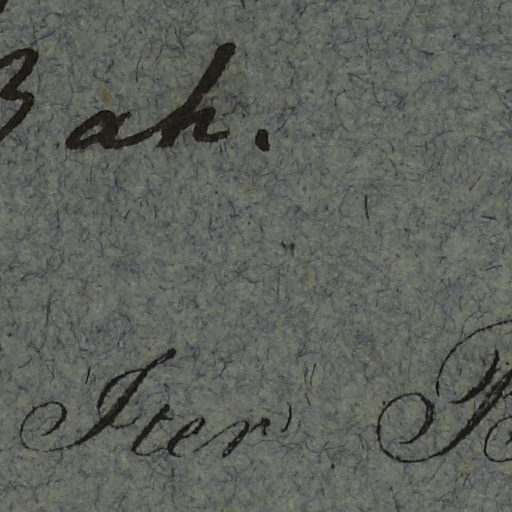 Bah.
Iter